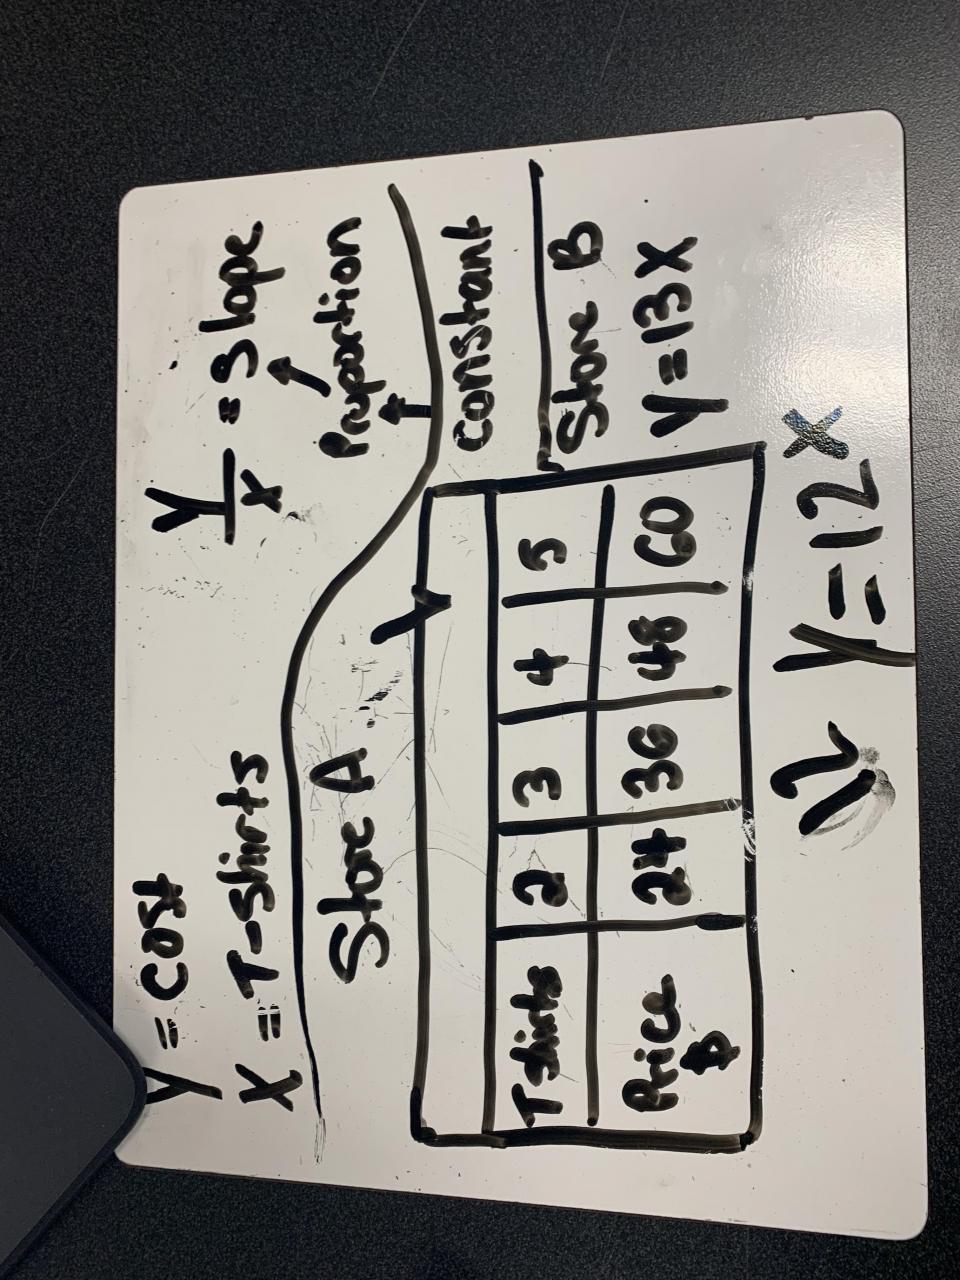 y = cost
x = T-shirts
y/x = slope
Proportion
constant
Store A
T-shirts 2 3 4 5
Price $ 24 36 48 60
y = 12x
Store B
y = 13x